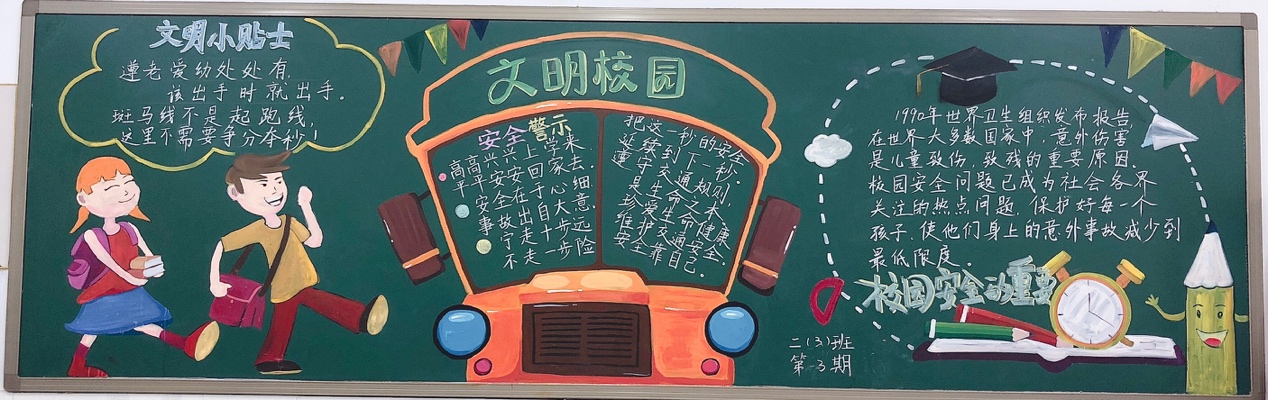 文明小贴士
遵老爱幼处处有,
该出手时就出手。
斑马线不是起跑线,
这里不需要争分夺秒!
文明校园
安全警示
高高兴兴上学来
平平安安回家去
安全在于心细
事故出自大意
宁走十步远
不走一步险
把这一秒的安全,
延续到下一秒。
遵守交通规则,
是生命之本。
珍爱生命健康,
维护交通安全。
安全靠自己。
1990年世界卫生组织发布报告,
在世界大多数国家中,意外伤害
是儿童致伤,致残的重要原因。
校园安全问题已成为社会各界
关注的热点问题。保护好每一个
孩子,使他们身上的意外事故减少到
最低限度。
校园安全重要
二(3)班
第3期